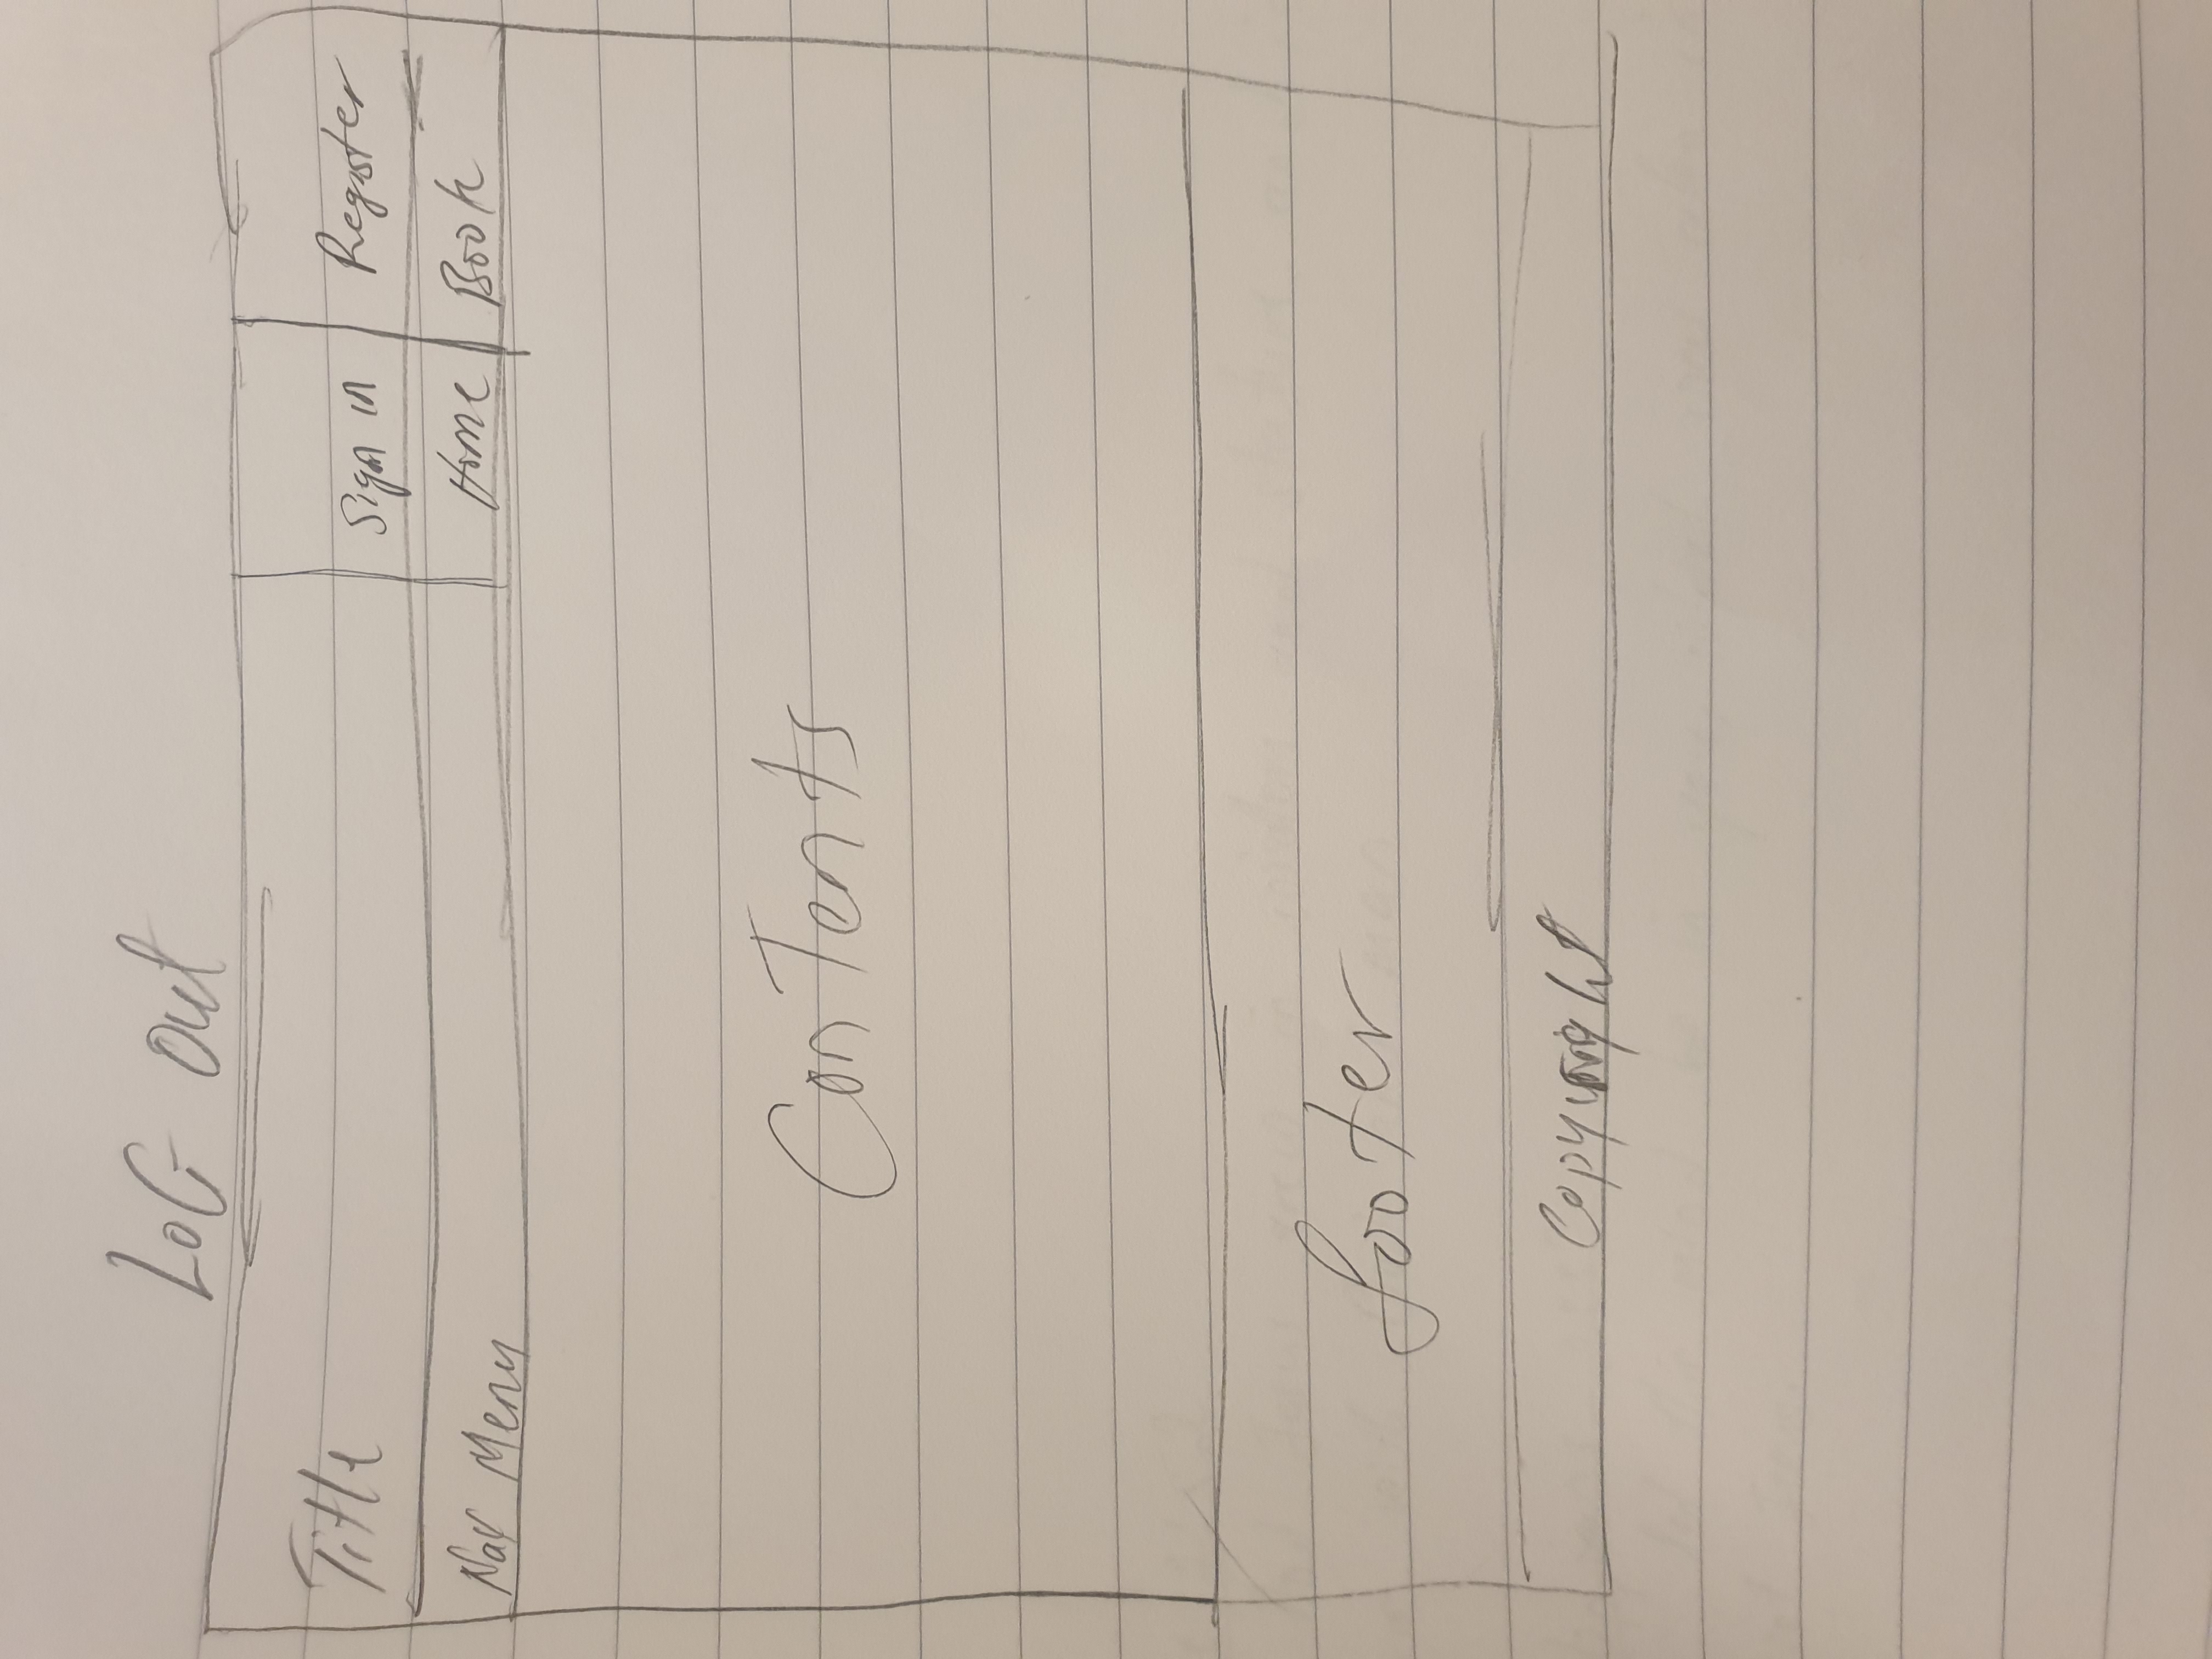 LoG Out
Title Sign in Register
Nav Menu Home Book
Contents
footer
Copyright